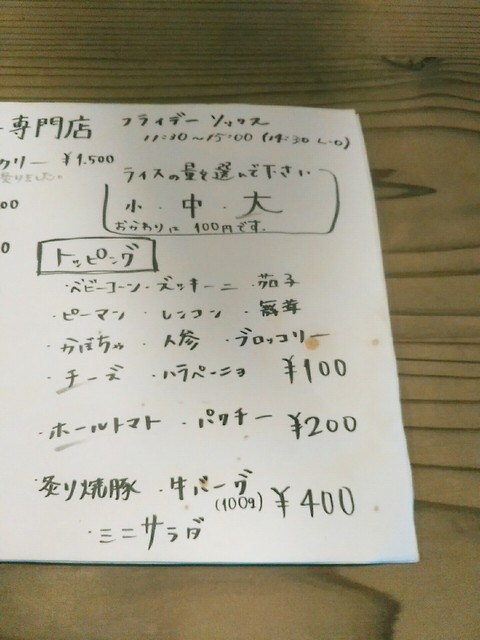 専門店 フライデーソックス
11:30〜15:00 (14:30 L.O)
カリー ¥1,500
ライスの量を選んで下さい
小・中・大
おかわりは 100円です。
トッピング
・ベビーコーン・ズッキーニ ・茄子
・ピーマン ・レンコン ・舞茸
・かぼちゃ ・人参 ・ブロッコリー
・チーズ ・ハラペーニョ ¥100
・ホールトマト ・パクチー ¥200
炙り焼豚 ・牛バーグ
(100g) ¥400
・ミニサラダ